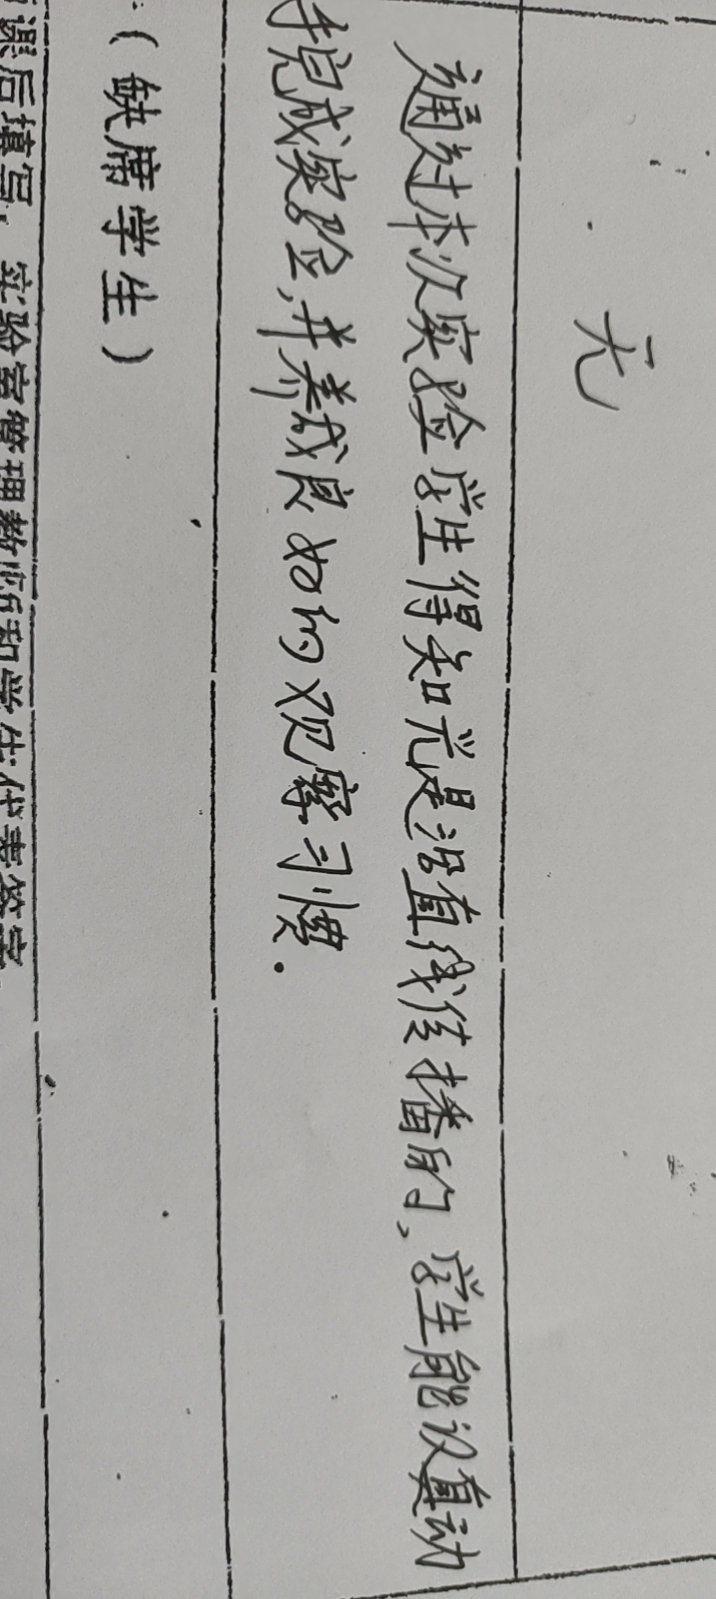 无
通过本次实验学生得知光是沿直线传播的,学生能认真动
手完成实验,并养成良好的观察习惯.
(缺席学生)
课后填写,实验室管理教师和学生代表签字